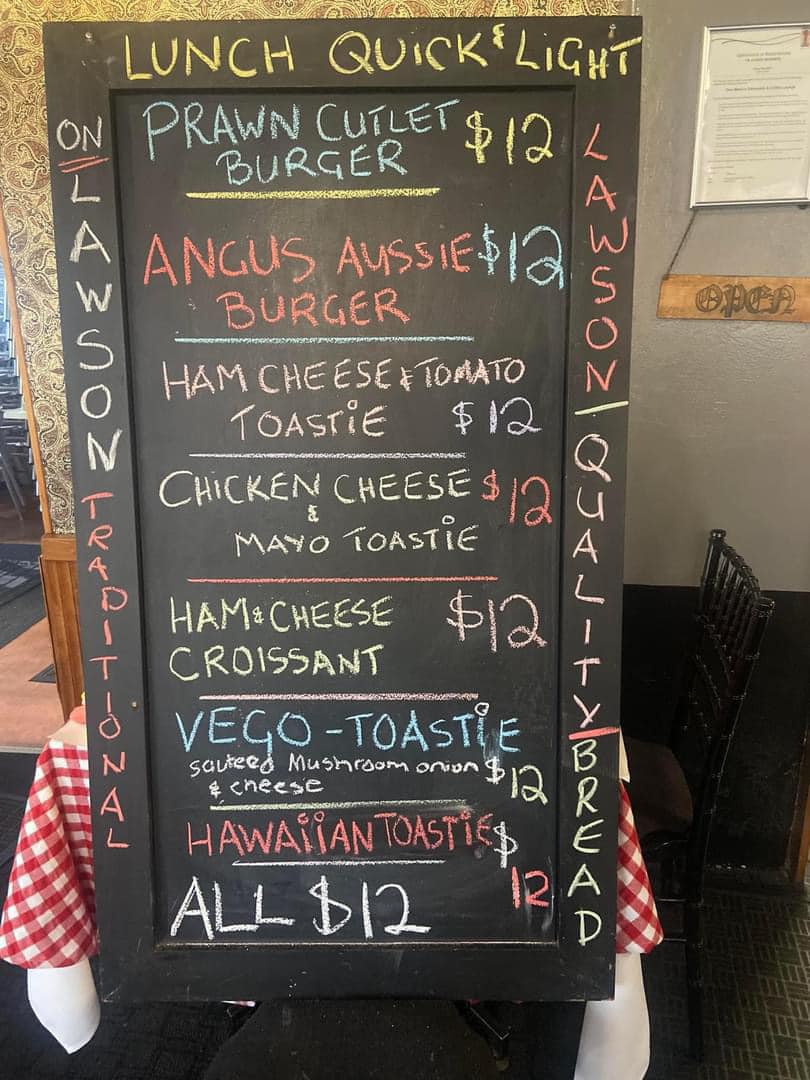 LUNCH QUICK & LIGHT
ON LAWSON TRADITIONAL
PRAWN CUTLET $12
BURGER
ANGUS AUSSIE $12
BURGER
HAM CHEESE & TOMATO
TOASTIE $12
CHICKEN CHEESE $12
&
MAYO TOASTIE
HAM & CHEESE $12
CROISSANT
VEGO-TOASTIE
sauteed Mushroom onion $12
& cheese
HAWAIIAN TOASTIE $
12
ALL $12
LAWSON QUALITY BREAD
OPEN